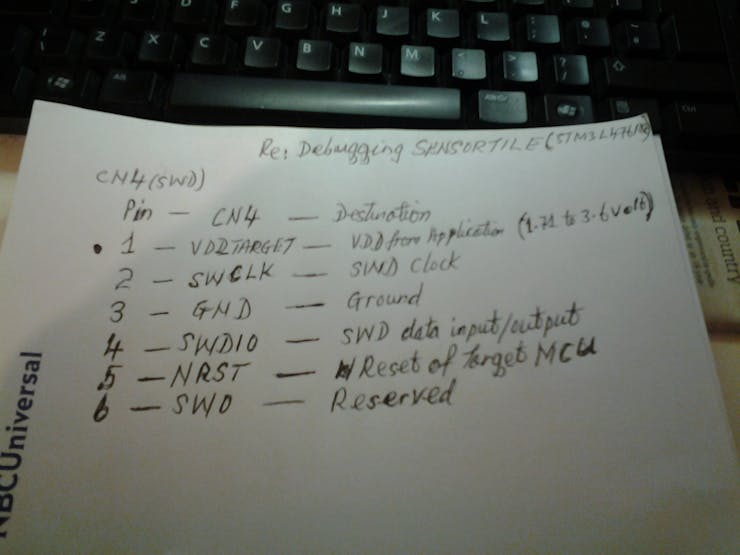 Z X C V B N M
F G H J K L
Alt
Ctrl
Re: Debugging SENSORTILE (STM32L476
CN4(SWD)
Pin — CN4 — Destination
1 — VDDTARGET — VDD from Application (1.71 to 3.6 Volt)
2 — SWCLK — SWD Clock
3 — GND — Ground
4 — SWDIO — SWD data input/output
5 — NRST — Reset of Target MCU
6 — SWO — Reserved
NBCUniversal
and country